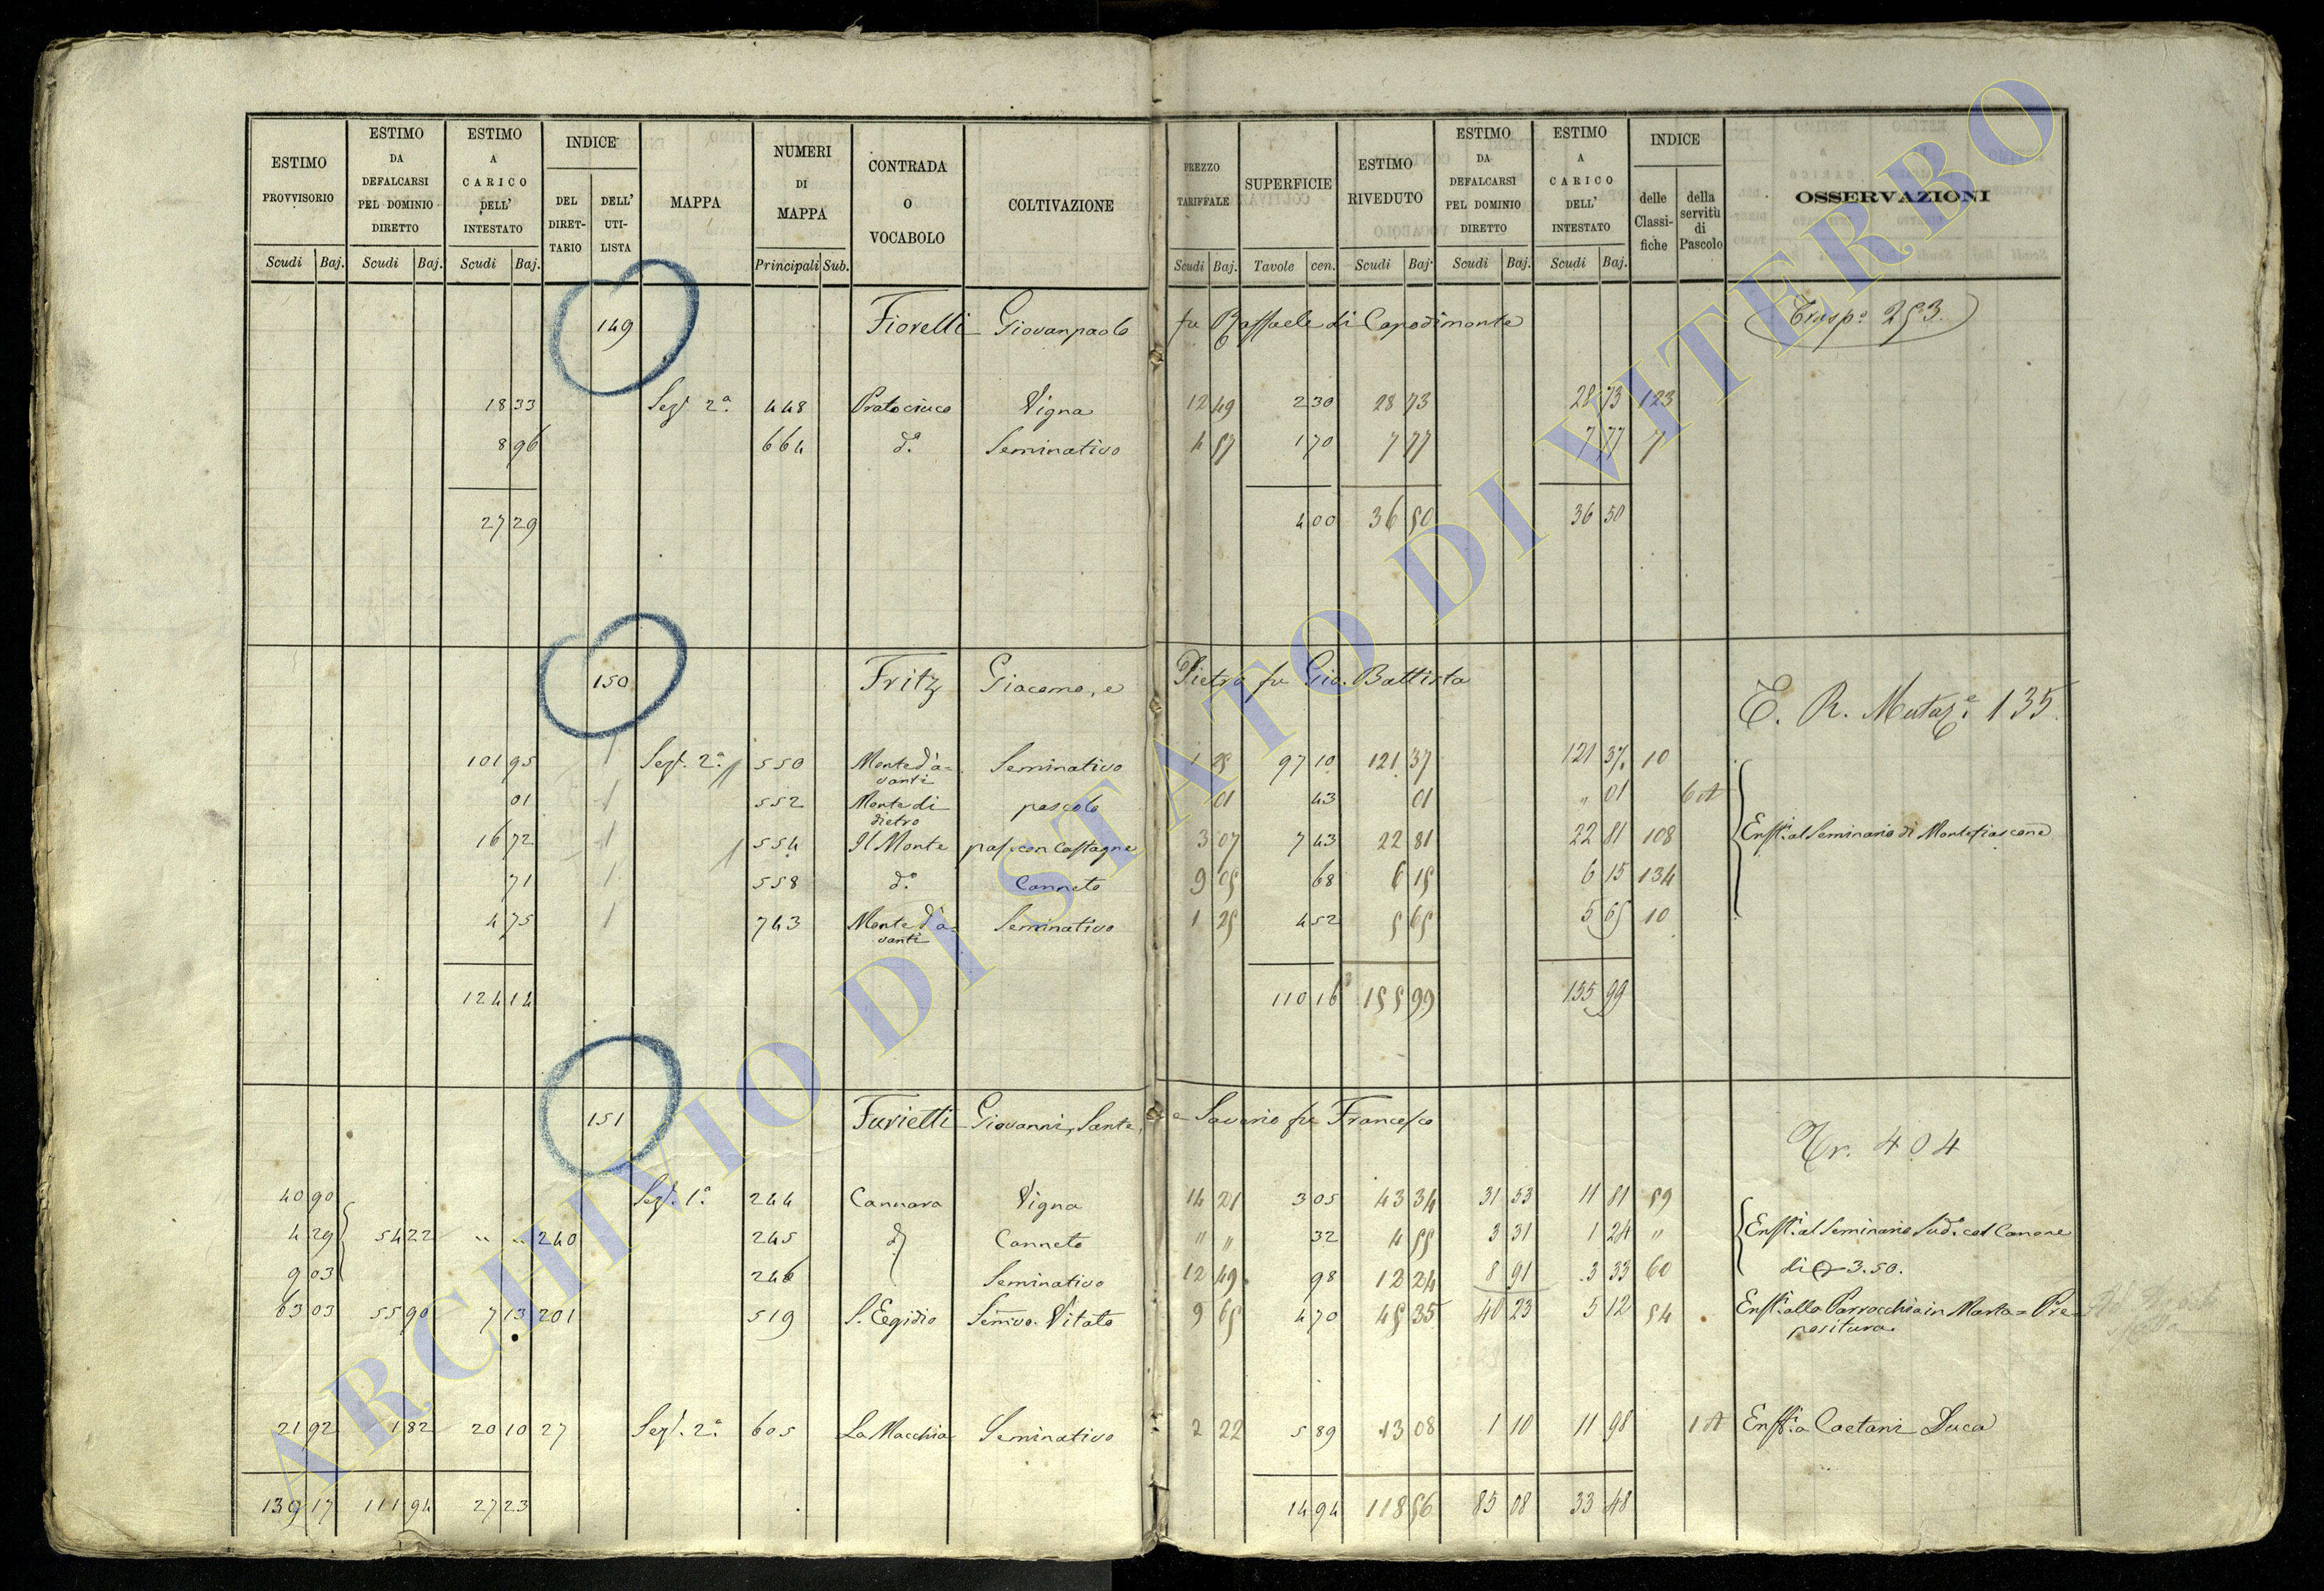 ESTIMO PROVVISORIO | ESTIMO DA DEFALCARSI PEL DOMINIO DIRETTO | ESTIMO A CARICO DELL' INTESTATO | INDICE | MAPPA | NUMERI DI MAPPA | CONTRADA O VOCABOLO | COLTIVAZIONE | PREZZO TARIFFALE | SUPERFICIE | ESTIMO RIVEDUTO | ESTIMO DA DEFALCARSI PEL DOMINIO DIRETTO | ESTIMO A CARICO DELL' INTESTATO | INDICE | OSSERVAZIONI
DEL DIRETTARIO | DELL' UTILISTA | delle Classifiche | della servitù di Pascolo
Scudi Baj. | Scudi Baj. | Scudi Baj. | Principali Sub. | Scudi Baj. | Tavole cen. | Scudi Baj. | Scudi Baj. | Scudi Baj.
149 Fiorelli Giovanpaolo fu Raffaele di Capodimonte Trasp.o 253
18 33 Sez. 2.a 448 Vigna 12 49 2 30 28 73 28 73 123
8 96 664 d.o Seminativo 4 57 1 70 7 77 7 77 7
27 29 4 00 36 50 36 50
150 Fritz Giacomo, e Pietro fu Gio. Battista
E. R. Mutaz.e 135
101 95 1 Sez. 2.a 550 Monte d'avanti Seminativo 1 25 97 10 121 37 121 37 10
01 1 552 Monte di dietro pascolo 01 43 01 " 01
16 72 1 554 Il Monte pas. con Castagne 3 07 7 43 22 81 22 81 108 Enft.i al Seminario di Montefiascone
71 1 558 d.o Canneto 9 05 68 6 15 6 15 134
4 75 1 743 Monte d'avanti Seminativo 1 25 4 52 5 65 5 65 10
124 14 110 16 155 99 155 99
151 Furietti Giovanni, Sante, e Saverio fu Francesco
Tr. 404
40 90 Sez. 1.a 244 Cannara Vigna 14 21 3 05 43 34 31 53 11 81 59
4 29 54 22 " " 240 245 d Canneto " " 32 4 55 3 31 1 24 " Enft.i al Seminario Sud.o col Canone
9 03 246 Seminativo 12 49 98 12 24 8 91 3 33 60 di 3.50.
63 03 55 90 7 13 201 519 S. Egidio Semivo. Vitato 9 65 4 70 45 35 40 23 5 12 54 Enft.i alla Parrocchia in Marta = Prepositura.
21 92 1 82 20 10 27 Sez. 2.a 605 La Macchia Seminativo 2 22 5 89 13 08 1 10 11 98 Enft.i a Caetani Duca
139 17 111 94 27 23 14 94 118 56 85 08 33 48
ARCHIVIO DI STATO DI VITERBO